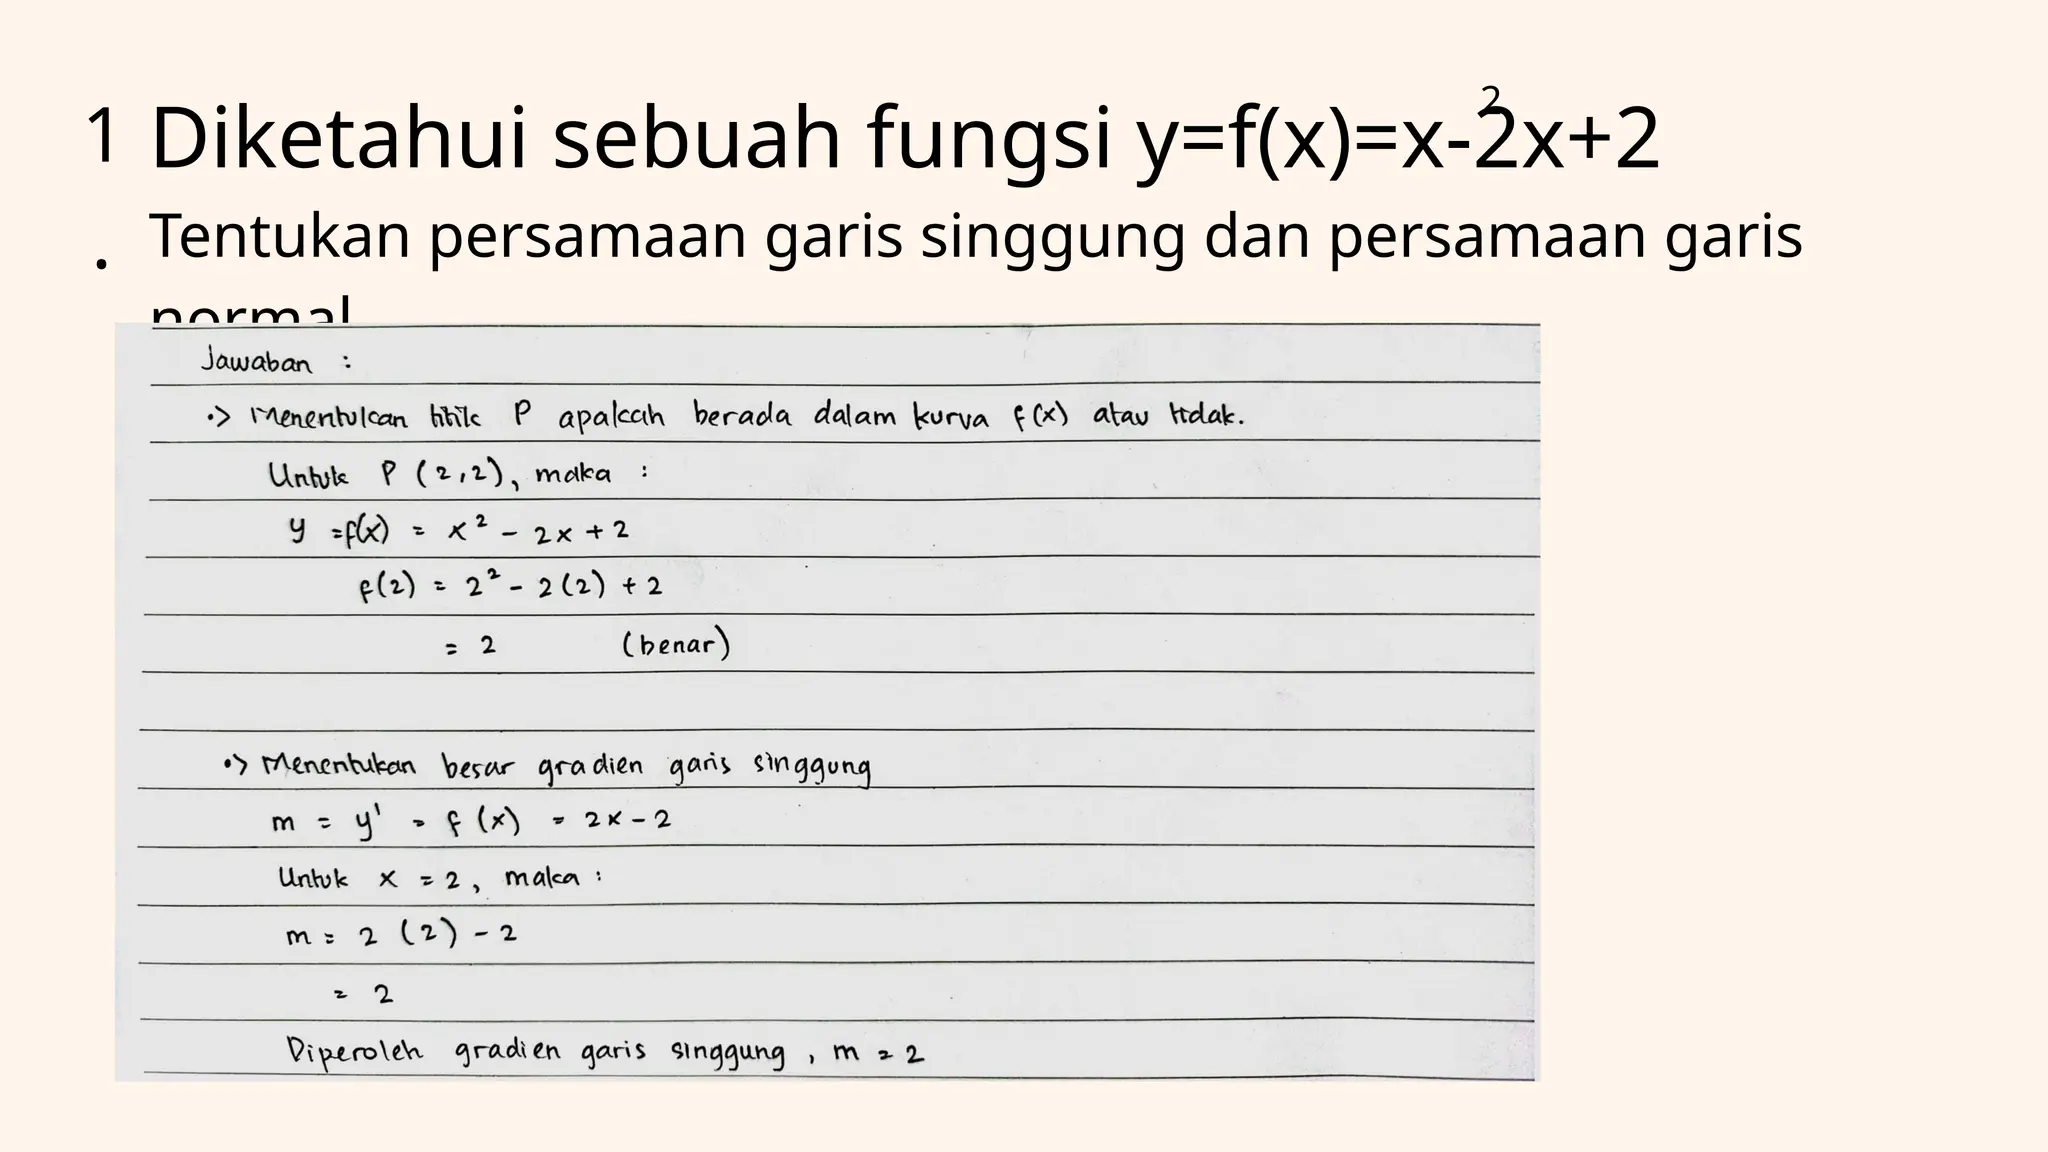 1 Diketahui sebuah fungsi y=f(x)=x²-2x+2
. Tentukan persamaan garis singgung dan persamaan garis
normal
Jawaban :
•> Menentukan titik P apakah berada dalam kurva f(x) atau tidak.
Untuk P (2,2), maka :
y =f(x) = x² - 2x + 2
f(2) = 2² - 2(2) + 2
= 2 (benar)
•> Menentukan besar gradien garis singgung
m = y' = f (x) = 2x - 2
Untuk x = 2, maka :
m = 2 (2) - 2
= 2
Diperoleh gradien garis singgung , m = 2